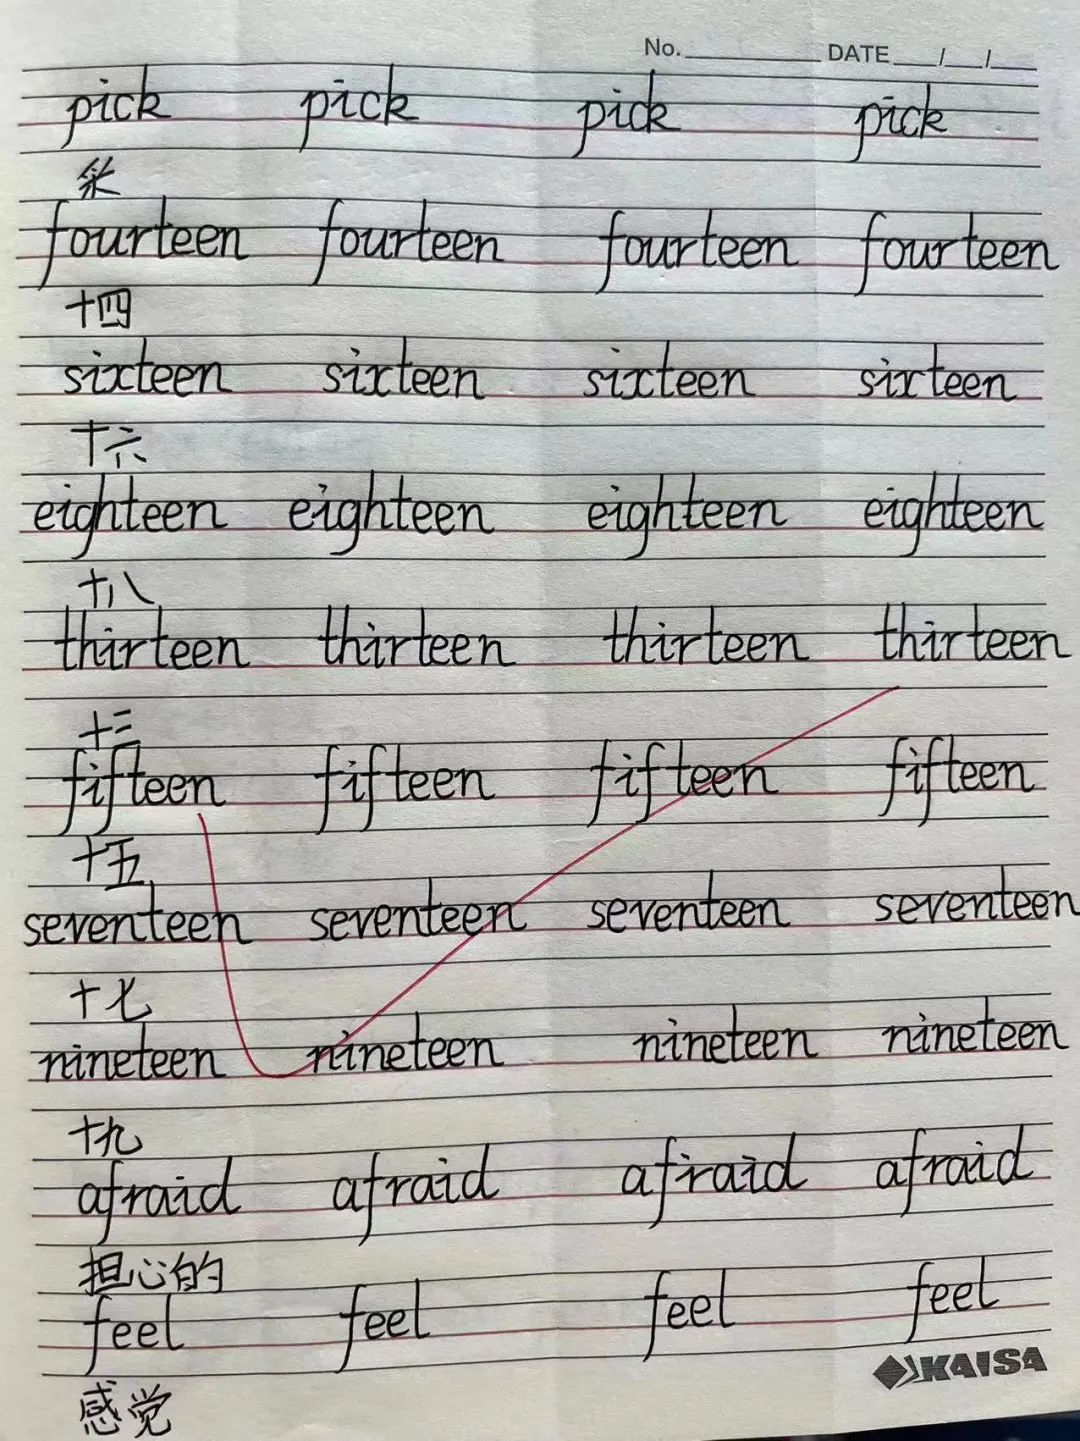 No. DATE / /
pick pick pick pick
采
fourteen fourteen fourteen fourteen
十四
sixteen sixteen sixteen sixteen
十六
eighteen eighteen eighteen eighteen
十八
thirteen thirteen thirteen thirteen
十三
fifteen fifteen fifteen fifteen
十五
seventeen seventeen seventeen seventeen
十七
nineteen nineteen nineteen nineteen
十九
afraid afraid afraid afraid
担心的
feel feel feel feel
KAISA
感觉